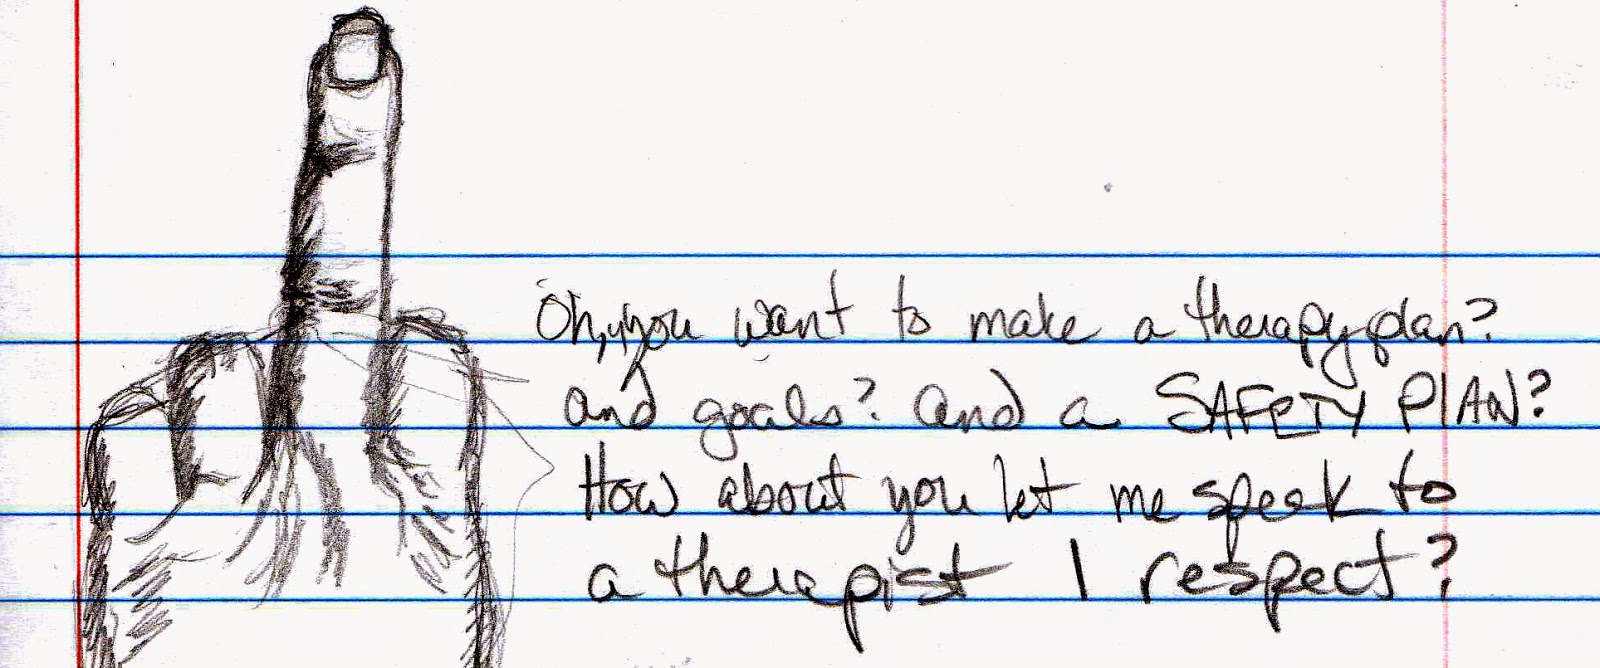 Oh, you want to make a therapy plan?
and goals? and a SAFETY PLAN?
How about you let me speak to
a therapist I respect?